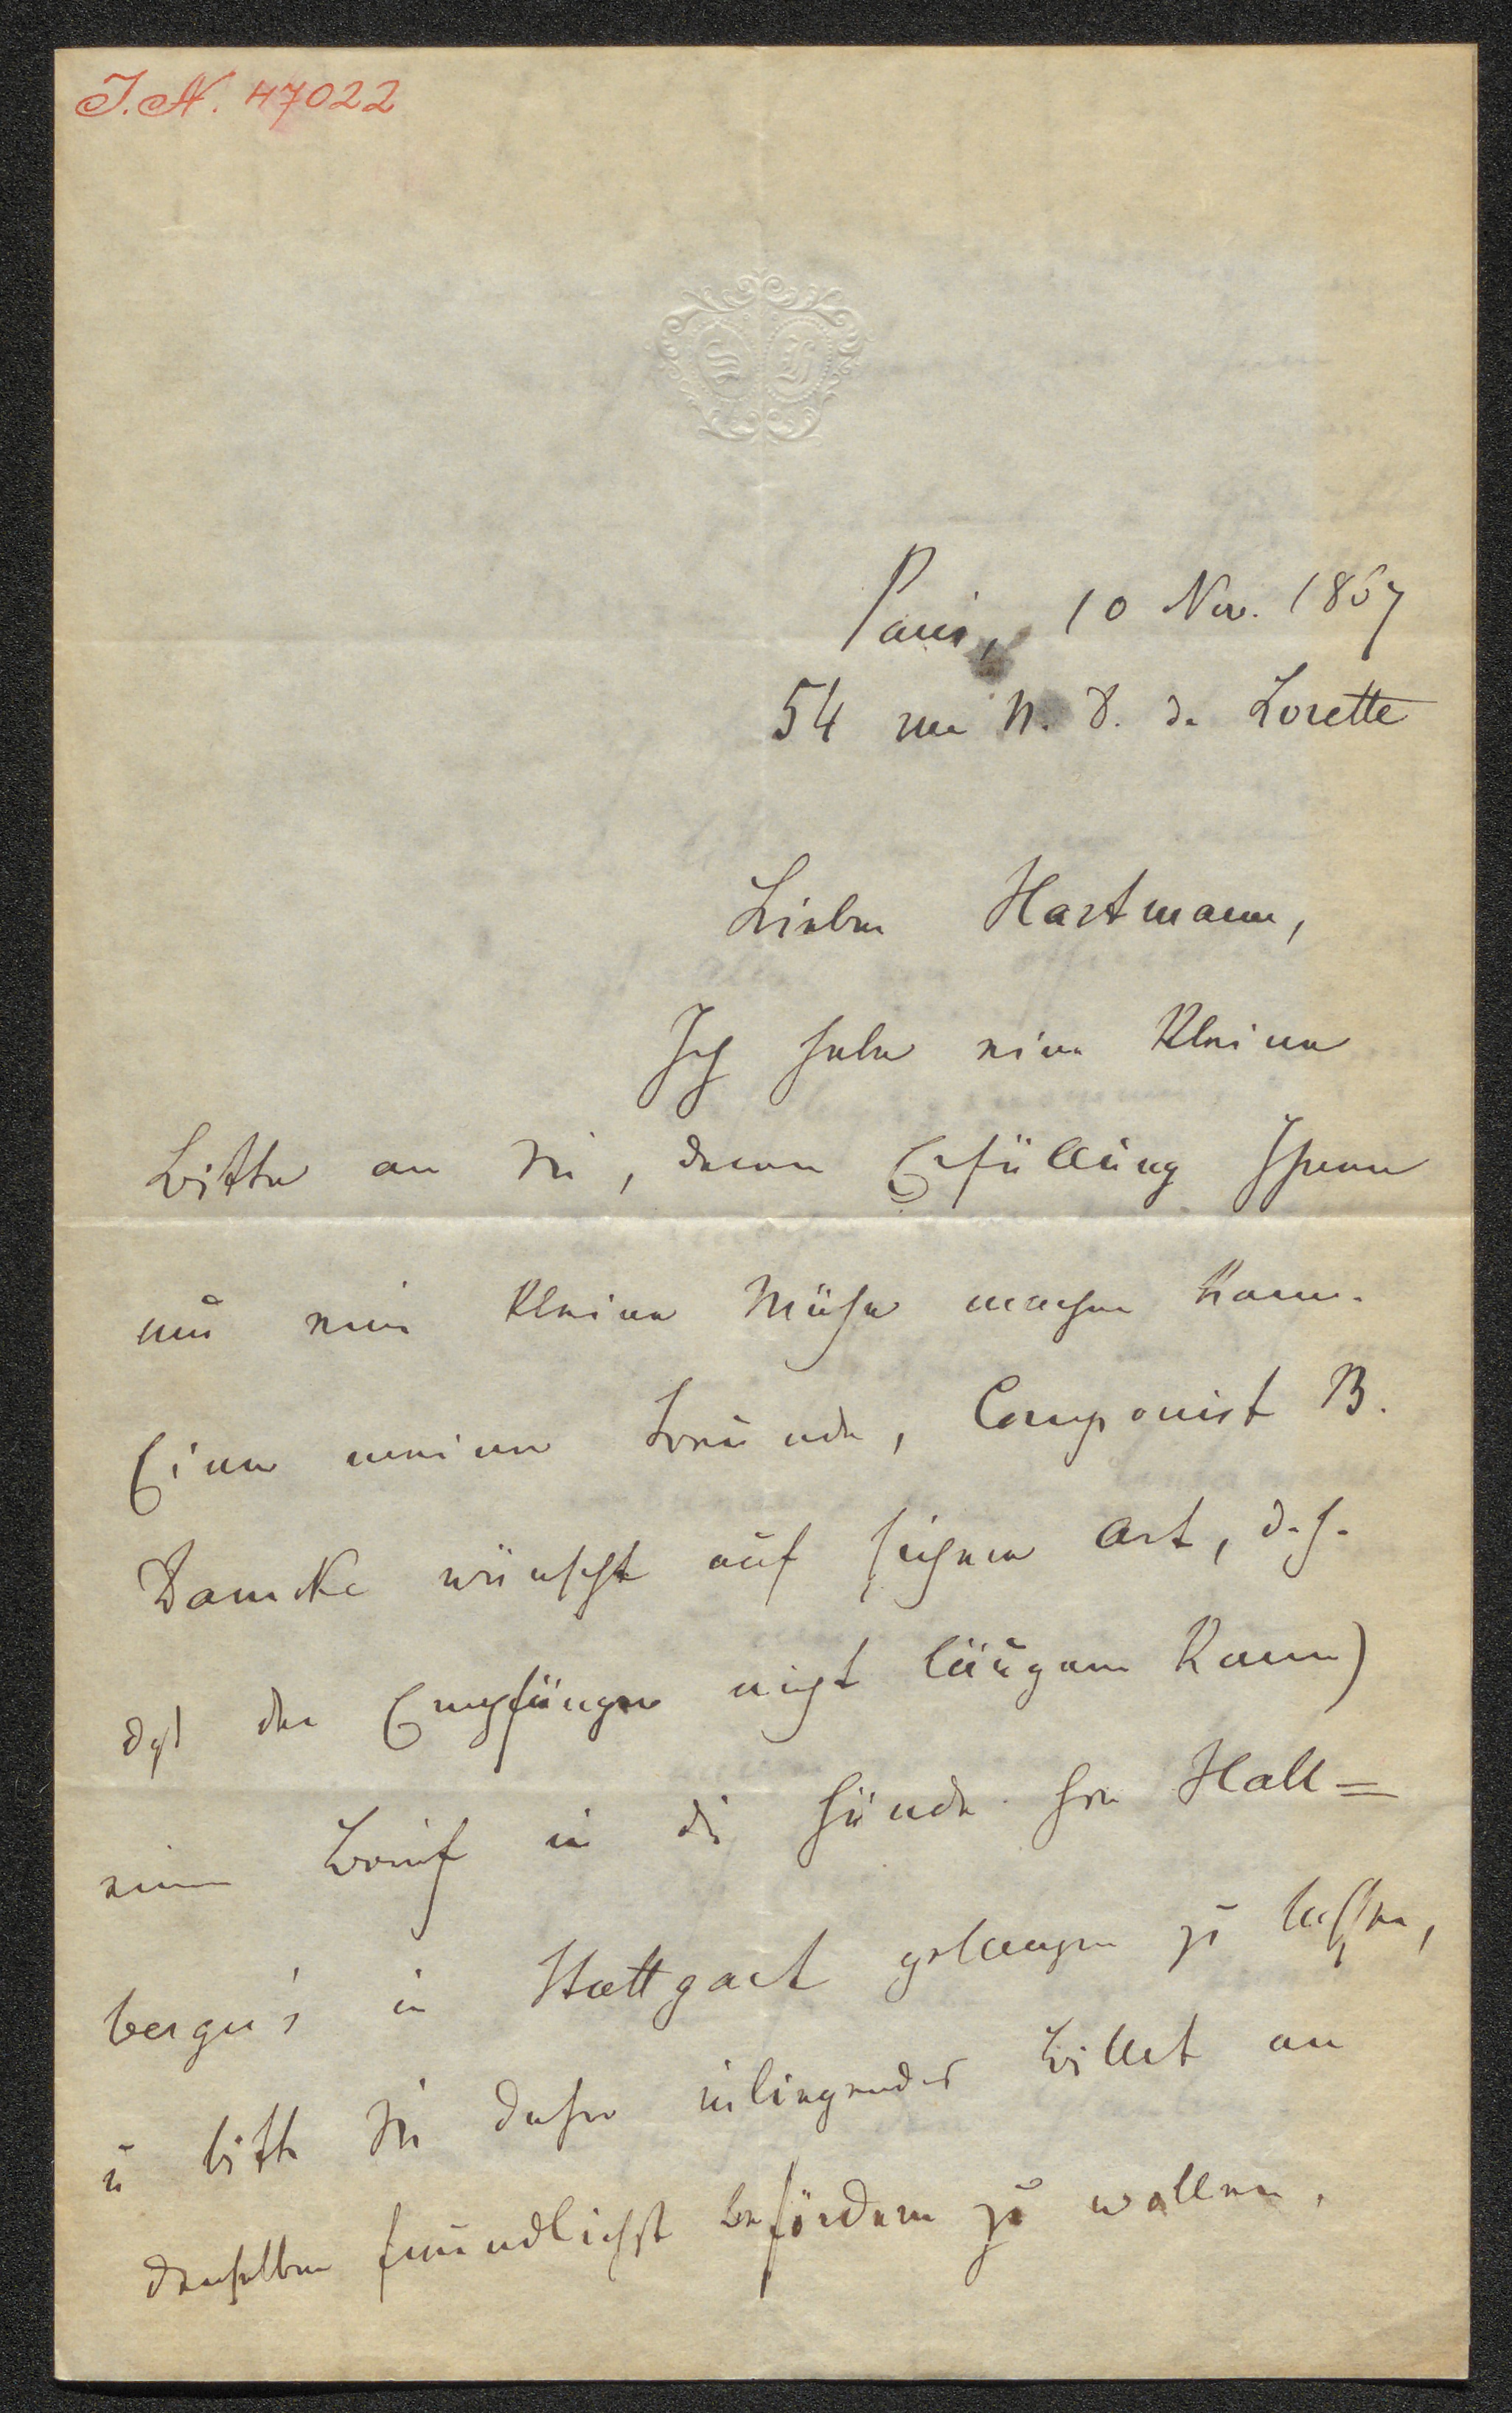 I.N. 47022
S H
Paris, 10 Nov. 1867
54 rue N. D. de Lorette
Lieber Hartmann,
Ich habe eine kleine
Bitte an Sie, deren Erfüllung Ihnen
nur eine kleine Mühe machen kann.
Einer meiner Freunde, Componist B.
Damcke wünscht auf sichere Art, d.h.
daß der Empfänger nicht läugnen kann)
einen Brief in die Hände Hrn Hall=
berger's in Stuttgart gelangen zu lassen,
u bitte Sie daher inliegendes Billet an
denselben freundlichst befördern zu wollen.